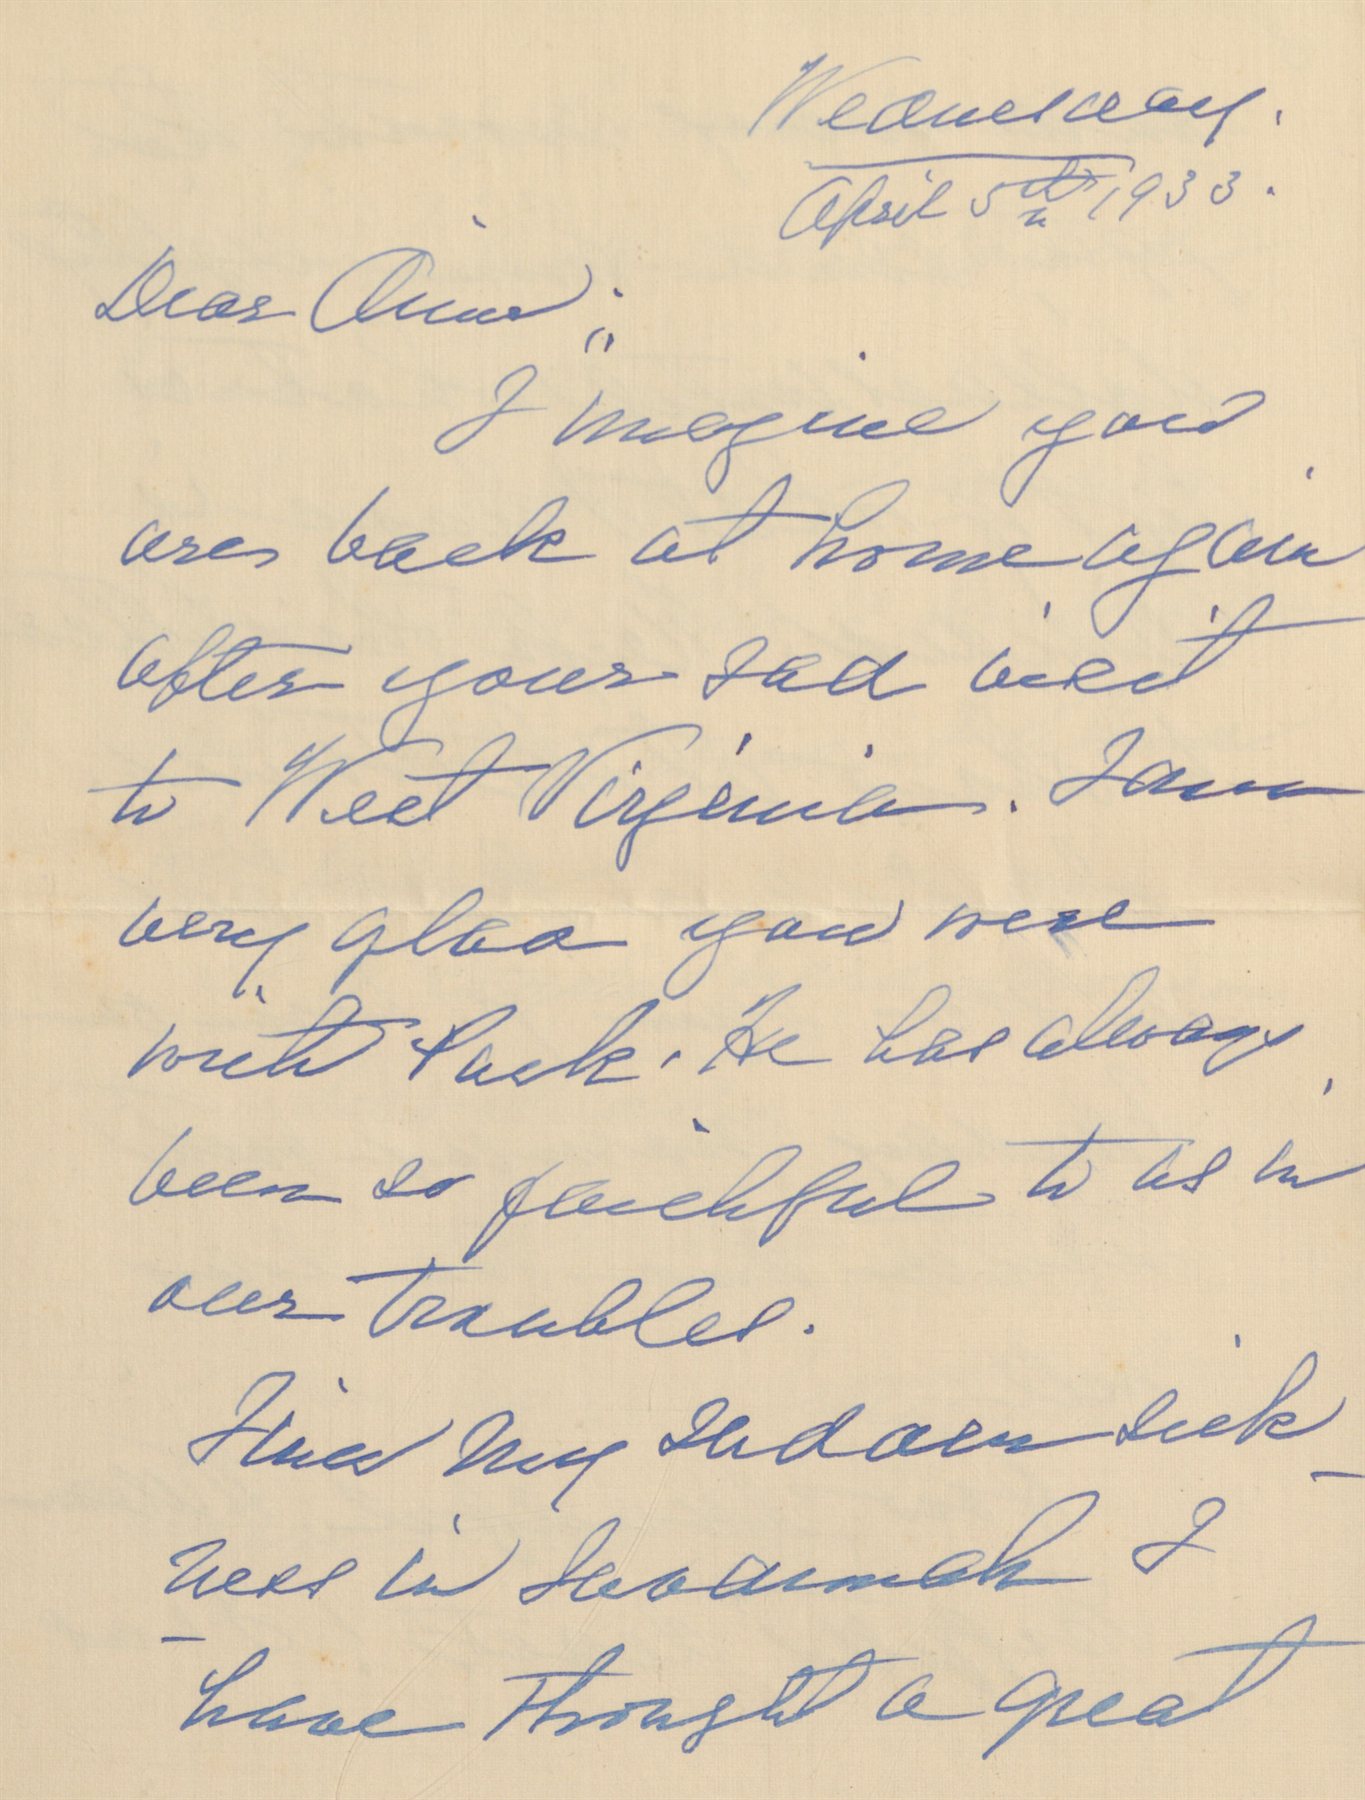 Wednesday.
April 5th, 1933.
Dear
I imagine you
are back at home again
after your sad visit
to West Virginia. I am
very glad you were
with Jack. He has always
been so faithful to us in
our troubles.
Since my sudden sick-
ness in Savannah I
have thought a great